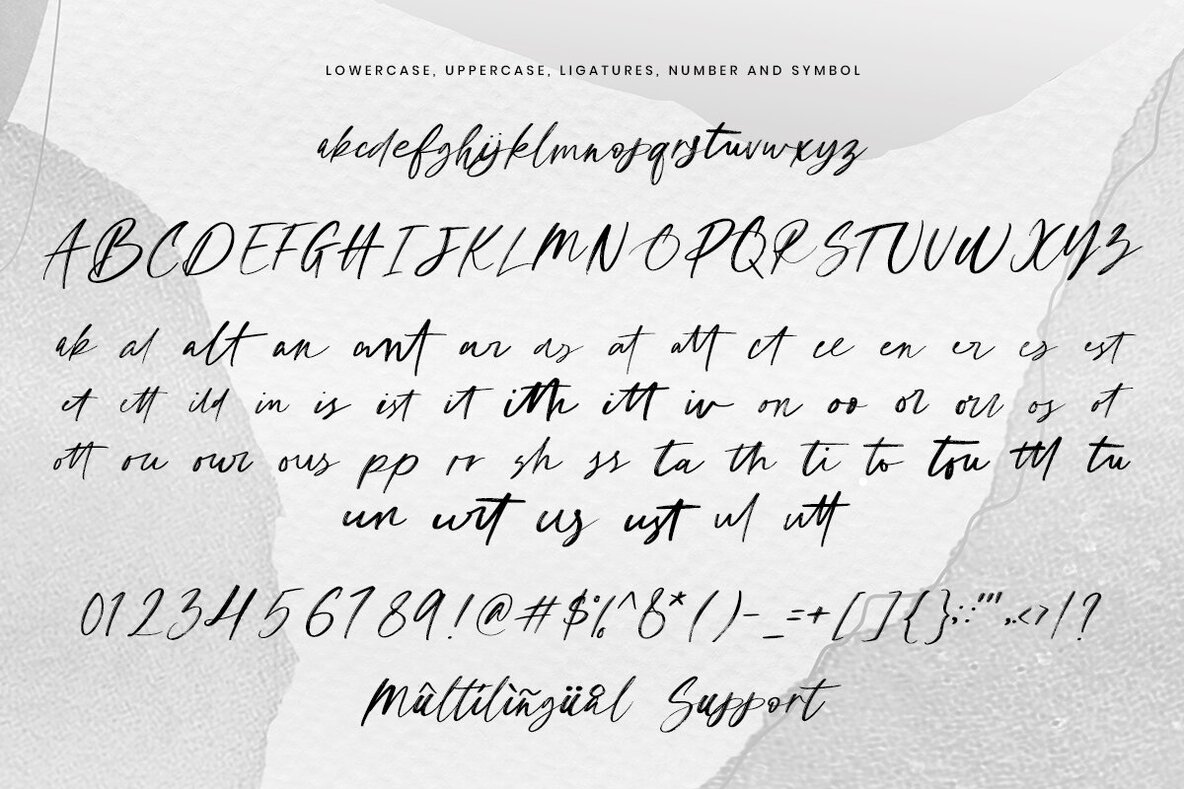 LOWERCASE, UPPERCASE, LIGATURES, NUMBER AND SYMBOL
abcdefghijklmnopqrstuvwxyz
ABCDEFGHIJKLMNOPQRSTUVWXYZ
ak al alt an ant ar as at att ct ee en er es est
et ett ild in is ist it ith itt iv on oo or orr os ot
ott ou our ous pp rr sh ss ta th ti to tou ttl tu
un urt us ust ul utt
0123456789!@#$%^&*()-_=+[]{};:"',.<>/?
Mûltílìñgüål Support